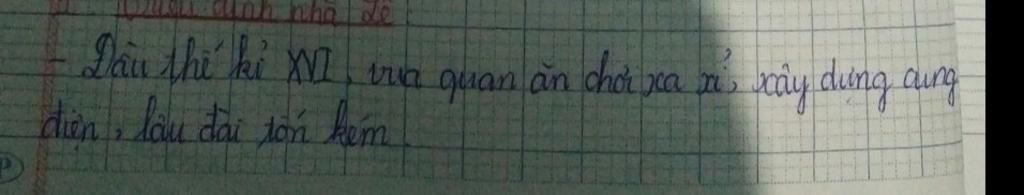 đình nhà Lê
- Đầu thế kỉ XVI, vua quan ăn chơi xa xỉ, xây dựng cung
điện, lâu đài tốn kém.